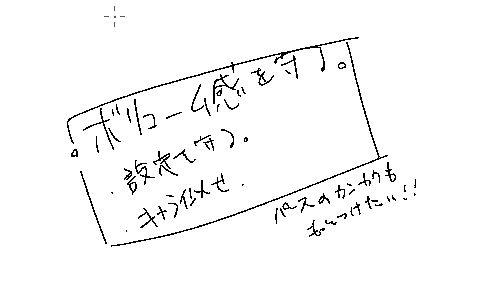 。ボリューム感を守る。
・設定を守る。
・キャラ似せ.
パースのカンカクも
もっつけたい!!